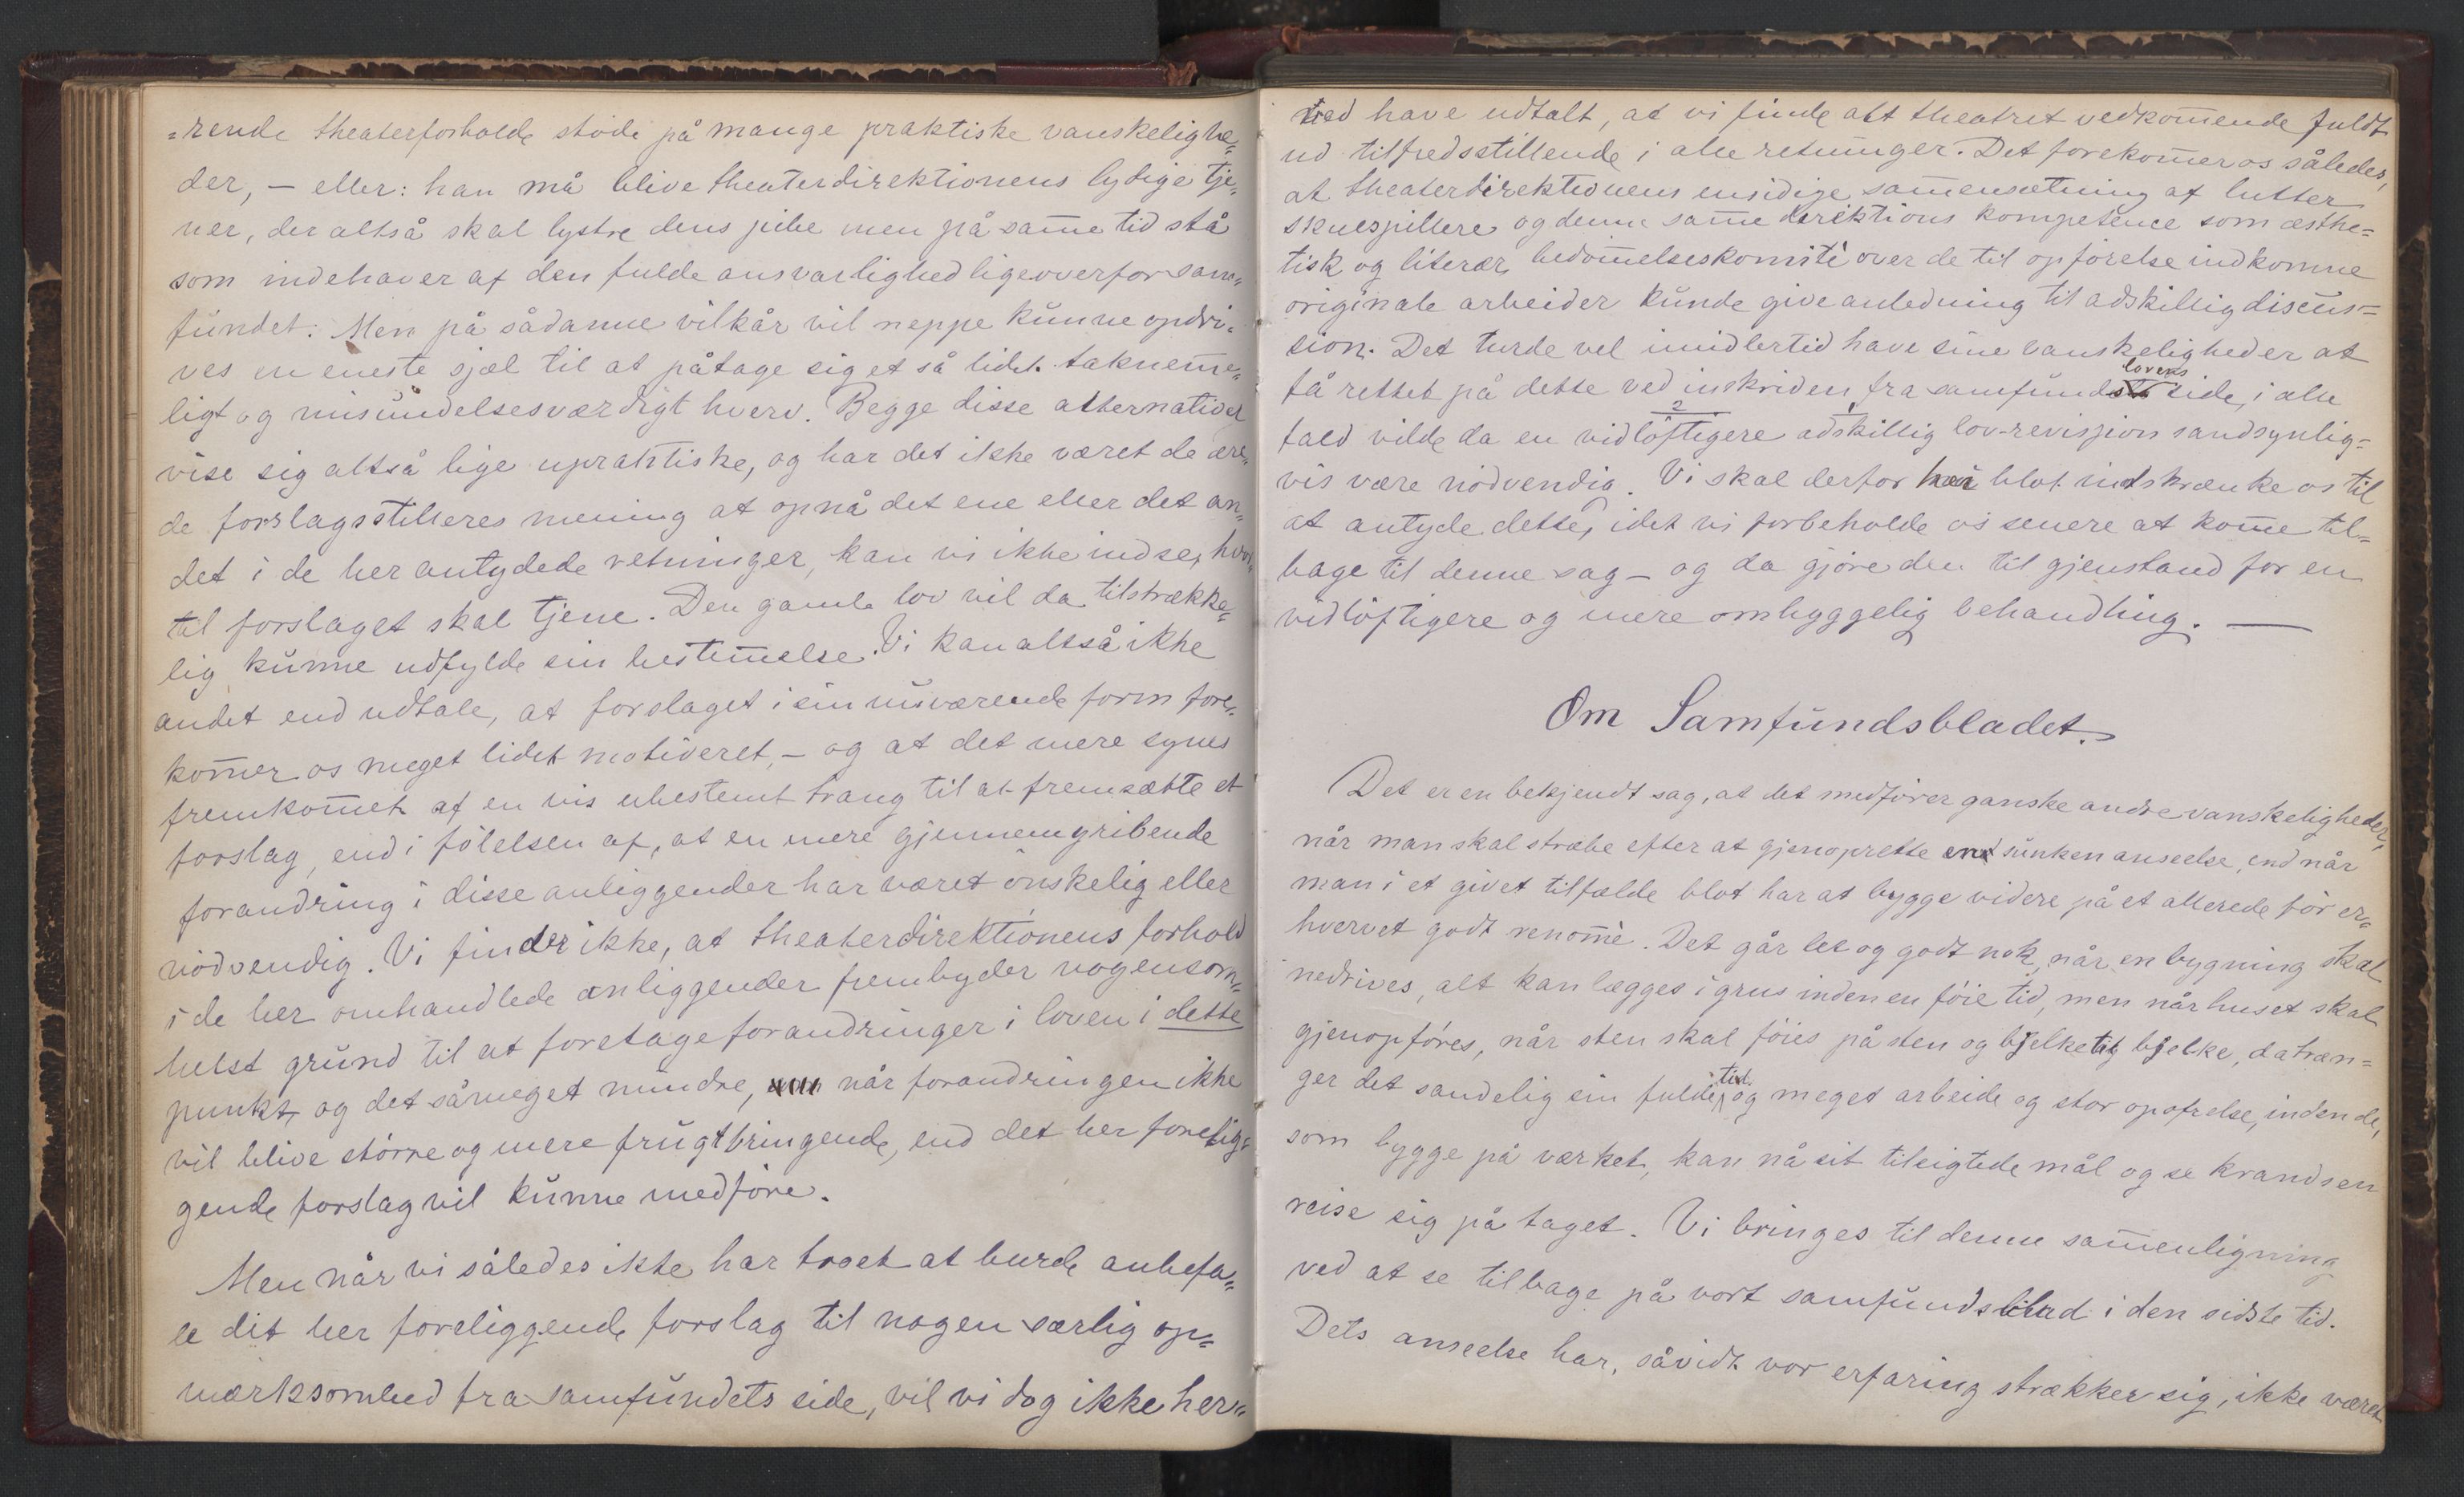 =rende theaterforholde støde på mange praktiske vanskelighe=
der, — eller: han må blive theaterdirektionens lydige tje=
ner, der altså skal lystre dens pibe men på sam̄e tid stå
som indehaver af den fulde ansvarlighed ligeoverfor sam=
fundet. Men på sådanne vilkår vil neppe kunne opdri=
ves en eneste sjæl til at påtage sig et så lidet taknem̄e=
ligt og misundelsesværdigt hverv. Begge disse alternativer
vise sig altså lige upraktiske, og har det ikke været de ære=
de forslagsstilleres mening at opnå det ene eller det an=
det i de her antydede retninger, kan vi ikke indse, hvor=
til forslaget skal tjene. Den gamle lov vil da tilstrække=
lig kunne udfylde sin bestem̄else. Vi kan altså ikke
andet end udtale, at forslaget i sin nuværende form fore=
kom̄er os meget lidet motiveret, — og at det mere synes
fremkom̄et af en vis ubestemt trang til at fremsætte et
forslag, end i følelsen af, at en mere gjennemgribende
forandring i disse anliggender har været ønskelig eller
nødvendig. Vi finder ikke, at theaterdirektionens forhold
i de her omhandlede anliggender frembyder nogensom=
helst grund til at foretage forandringer i loven i dette
punkt, og det såmeget mindre, når forandringen ikke
vil blive større og mere frugtbringende, end det her forelig=
gende forslag vil kunne medføre.
Men når vi således ikke har troet at burde anbefa=
le det her foreliggende forslag til nogen særlig op=
mærksomhed fra samfundets side, vil vi dog ikke her=
ved have udtalt, at vi finde alt theatret vedkom̄ende fuldt
ud tilfredsstillende i alle retninger. Det forekom̄er os således,
at theaterdirektionens ensidige sam̄ensætning af lutter
skuespillere og denne sam̄e direktions kompetence som æsthe=
tisk og literær bedøm̄elseskomité over de til opførelse indkomne
originale arbeider kunde give anledning til adskillig discus=
sion. Det turde vel imidlertid have sine vanskeligheder at
lovens
få rettet på dette ved inskriden fra samfundets side, i alle
2 1
fald vilde da en vidløftigere adskillig lov-revision sandsynlig=
vis være nødvendig. Vi skal derfor her blot indskrænke os til
at antyde dette, idet vi forbeholde os senere at kom̄e til=
bage til denne sag — og da gjøre den til gjenstand for en
vidløftigere og mere omhyggelig behandling. —
Om Samfundsbladet.
Det er en bekjendt sag, at det medfører ganske andre vanskeligheder,
når man skal stræbe efter at gjenoprette en sunken anseelse, end når
man i et givet tilfælde blot har at bygge videre på et allerede før er=
hvervet godt renom̄è. Det går let og godt nok, når en bygning skal
nedrives, alt kan lægges i grus inden en føie tid, men når huset skal
gjenopføres, når sten skal føies på sten og bjelke til bjelke, da træn=
tid
ger det sandelig sin fulde, og meget arbeide og stor opofrelse, inden de,
som bygge på værket, kan nå sit tilsigtede mål og se krandsen
reise sig på taget. Vi bringes til denne sam̄enligning
ved at se tilbage på vort samfundsblad i den sidste tid.
Dets anseelse har, såvidt vor erfaring strækker sig, ikke været